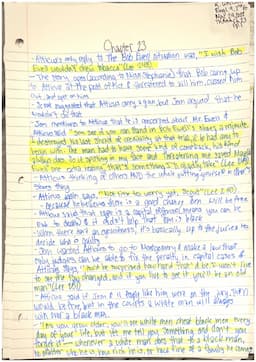 Chapter 23
- Atticus's only reply to the Bob Ewell situation was, "I wish Bob
Ewell wouldn't chew tobacco" (Lee 248)
- The story goes (according to Miss Stephanie) that Bob came up
to Atticus at the post office & threatened to kill him, cussed him
out, and spit on him
- Scout suggested that Atticus carry a gun, but Jem argued that he
wouldn't do that
- Jem mentions to Atticus that he is concerned about Mr. Ewell &
Atticus said "Jem see if you can stand in Bob Ewell's shoes a minute.
I destroyed his last shred of credibility at that trial, if he had any to
begin with. The man had to have some kind of comeback, his kind
always does. So if spitting in my face and threatening me saved Mayella
Ewell one extra beating, that's something I'll gladly take" (Lee
- Atticus thinking of others
shoes
- Atticus again says, "Not time to worry yet, Scout" (Lee
- because he believes there is a good chance Tom will be free
- Atticus said that rape is a capital offense, means you can be
put to death & it didn't help that Tom is black
- When there's not eyewitnesses, it's basically up to the juries to
decide who is guilty
- Jem wanted Atticus to go to Montgomery & make a law that
only judges can be able to fix the penalty in capital cases
Atticus says "you'd be surprised how hard that'd be. I won't live
to see the law changed, and if you live to see it you'll be an old
man" (Lee
- Atticus said if Jem & 11 boys like him were on the jury, Tom
would be free, but in the courts a white man will always
win over a black man.
- "As you grow older, you'll see white men cheat black men every
day of your life, but let me tell you something and don't you
forget it - whenever a white man does that to a black man,
no matter who he is, how rich he is, or how fine of a family he comes